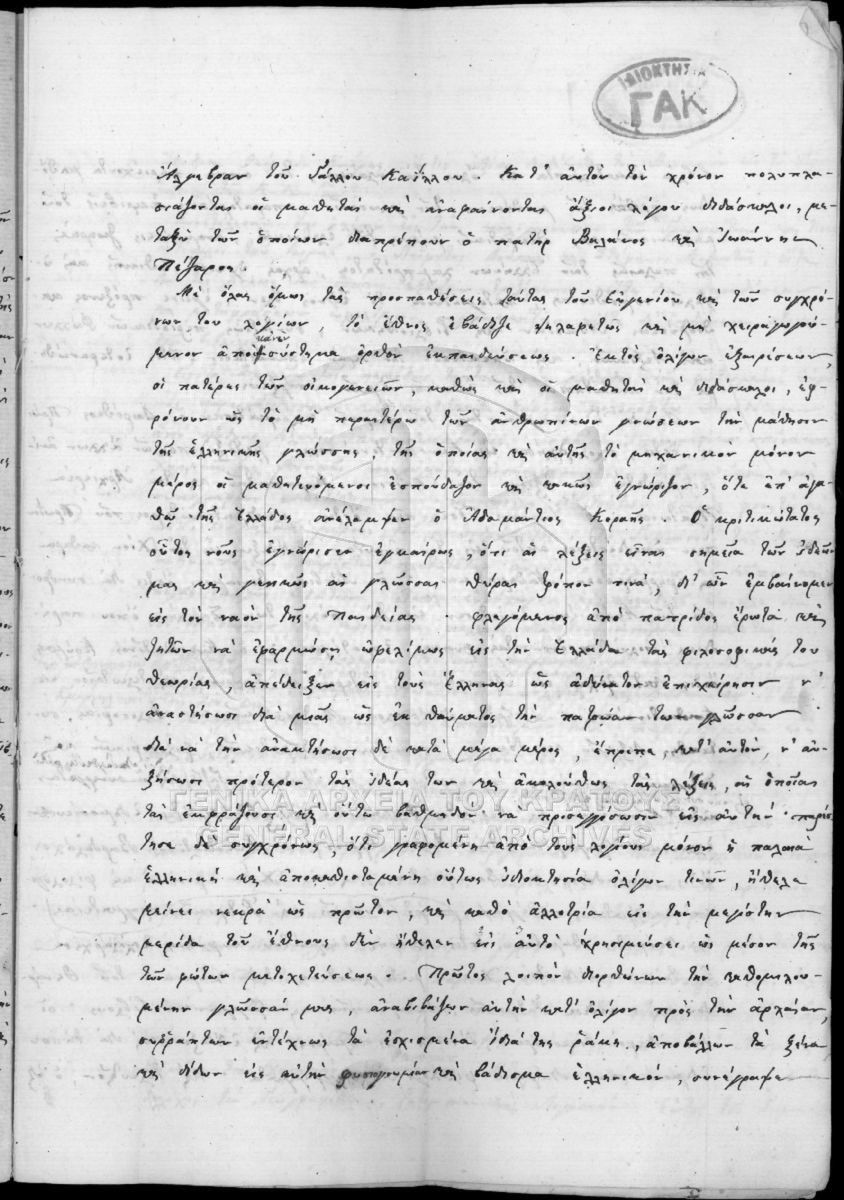 ΙΔΙΟΚΤΗΣΙΑ
ΓΑΚ
Ἄλγεβραν τοῦ Γάλλου Καΐλλου. Κατ' αὐτὸν τὸν χρόνον πολυπλα-
σιάζονται οἱ μαθηταὶ καὶ ἀναφαίνονται ἄξιοι λόγου διδάσκαλοι, με-
ταξὺ τῶν ὁποίων διαπρέπουν ὁ πατὴρ Βαλάνος καὶ Ἰωάννης
Πέζαρος.
Μὲ ὅλας ὅμως τὰς προσπαθήσεις ταύτας τοῦ Εὐγενίου καὶ τῶν συγχρό-
νων του λογίων, τὸ ἔθνος ἐβάδιζε ψηλαφητῶς καὶ μὴ χειραγωγού-
μενον ἀπὸ κανὲν σύστημα ὀρθὸν ἐκπαιδεύσεως. Ἐκτὸς ὀλίγων ἐξαιρέσεων,
οἱ πατέρες τῶν οἰκογενειῶν, καθὼς καὶ οἱ μαθηταὶ καὶ διδάσκαλοι, ἐφ-
ρόνουν ὡς τὸ μὴ περαιτέρω τῶν ἀνθρωπίνων γνώσεων τὴν μάθησιν
τῆς ἑλληνικῆς γλώσσης, τῆς ὁποίας καὶ αὐτῆς τὸ μηχανικὸν μόνον
μέρος οἱ μαθητευόμενοι ἐσπούδαζον καὶ κακῶς ἐγνώριζον, ὅτε ἐπ' ἀγα-
θῷ τῆς Ἑλλάδος ἀνέλαμψεν ὁ Ἀδαμάντιος Κοραῆς. Ὁ κριτικώτατος
οὗτος νοῦς ἐγνώρισεν ἐγκαίρως, ὅτι αἱ λέξεις εἶναι σημεῖα τῶν ἰδεῶν
μας καὶ γενικῶς αἱ γλῶσσαι θύραι τρόπον τινά, δι' ὧν ἐμβαίνομεν
εἰς τὸν ναὸν τῆς Παιδείας. φλεγόμενος ἀπὸ πατρίδος ἔρωτα καὶ
ζητῶν νὰ ἐφαρμώσῃ ὠφελίμως εἰς τὴν Ἑλλάδα τὰς φιλοσοφικάς του
θεωρίας, ἀπέδειξεν εἰς τοὺς Ἕλληνας ὡς ἀδύνατον ἐπιχείρησιν ν'
ἀναστήσωσι διὰ μιᾶς ὡς ἐκ θαύματος τὴν πατρῴαν των γλῶσσαν
διὰ νὰ τὴν ἀνακτήσωσι δὲ κατὰ μέγα μέρος, ἔπρεπε, κατ' αὐτὸν, ν' αὐ-
ξήσωσι πρότερον τὰς ἰδέας των καὶ ἀκολούθως τὰς λέξεις, αἱ ὁποῖαι
τὰς ἐκφράζουσι καὶ οὕτω βαθμηδὸν νὰ προσεγγίσωσιν εἰς αὐτήν. παρέσ-
τησε δὲ συγχρόνως, ὅτι γραφομένη ἀπὸ τοὺς λογίους μόνον ἡ παλαιὰ
ἑλληνικὴ καὶ ἀποκαθισταμένη οὕτως ἰδιοκτησία ὀλίγων τινῶν, ἤθελε
μείνει νεκρὰ ὡς πρῶτον, καὶ καθὸ ἀλλοτρία εἰς τὴν μεγίστην
μερίδα τοῦ ἔθνους δὲν ἤθελεν εἰς αὐτὸ χρησιμεύσει ὡς μέσον τῆς
τῶν φώτων μετοχετεύσεως. Πρῶτος λοιπὸν διορθώνων τὴν καθομιλου-
μένην γλῶσσάν μας, ἀναβιβάζων αὐτὴν κατ' ὀλίγον πρὸς τὴν ἀρχαίαν,
συῤῥάπτων ἐντέχνως τὰ ἐσχισμένα ἤδη της ῥάκη, ἀποβάλλων τὰ ξένα
καὶ δίδων εἰς αὐτὴν φυσιογνωμίαν καὶ βάδισμα ἑλληνικόν, συνέγραψε
ΓΕΝΙΚΑ ΑΡΧΕΙΑ ΤΟΥ ΚΡΑΤΟΥΣ
GENERAL STATE ARCHIVES